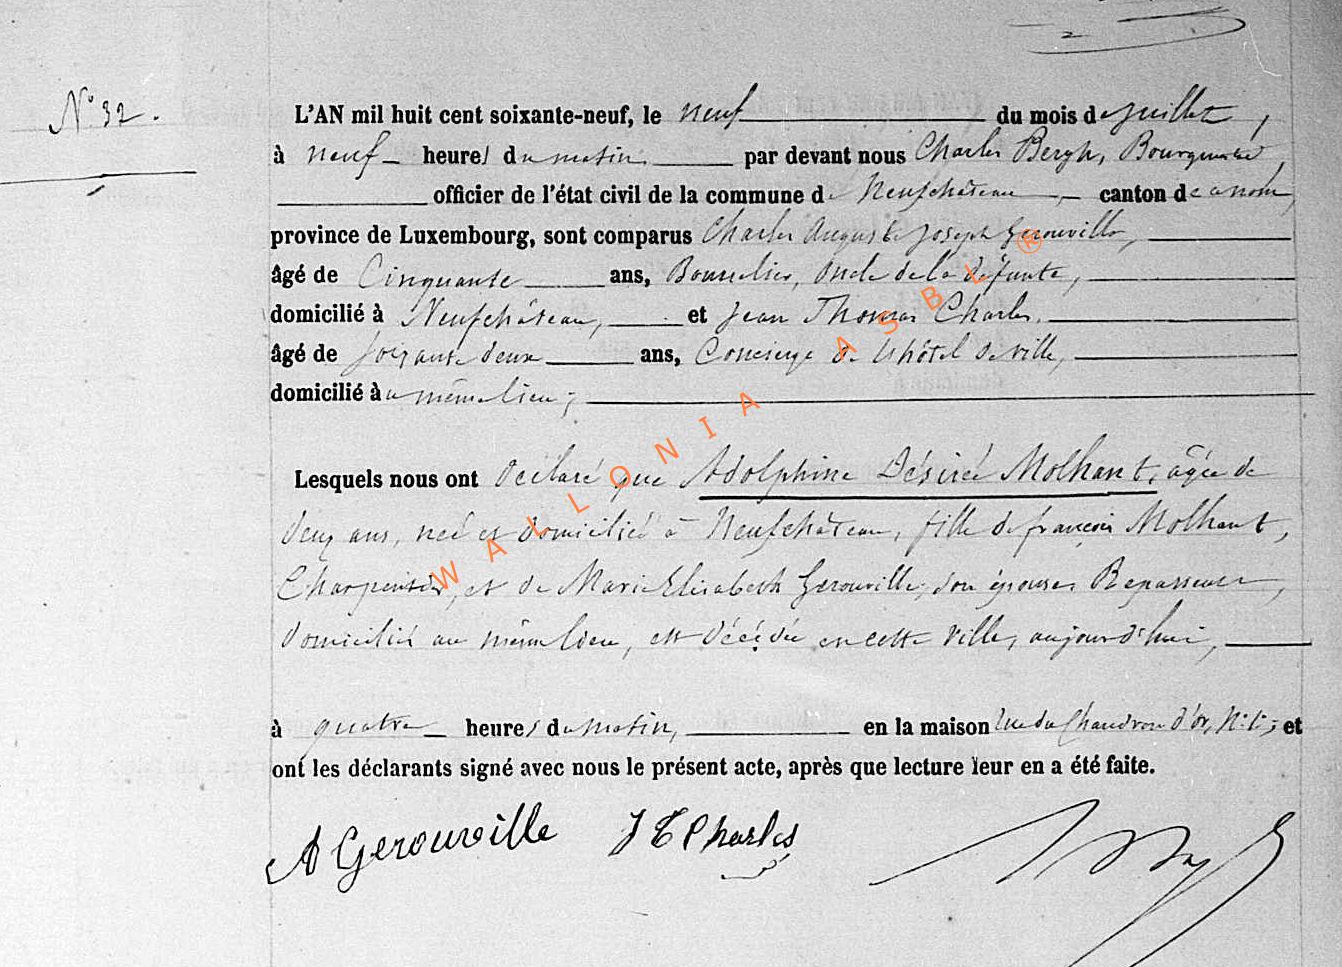 N° 32.
L'AN mil huit cent soixante-neuf, le neuf du mois de juillet,
à neuf heures du matin, par devant nous Charles Bergh, Bourgmestre,
officier de l'état civil de la commune de Neufchâteau, canton de ce nom,
province de Luxembourg, sont comparus Charles Auguste Joseph Gerouville,
âgé de Cinquante ans, Bourrelier, oncle de la défunte,
domicilié à Neufchâteau, et Jean Thomas Charles,
âgé de soixante deux ans, Concierge de l'hôtel de ville,
domicilié au même lieu;
Lesquels nous ont déclaré que Adolphine Désirée Molhant, âgée de
deux ans, née et domiciliée à Neufchâteau, fille de françois Molhant,
Charpentier, et de Marie Elisabeth Gerouville, son épouse, Repasseuse,
domiciliés au même lieu, est décédée en cette ville, aujourd'hui,
à quatre heures du matin, en la maison Rue du Chaudron d'or, et
ont les déclarants signé avec nous le présent acte, après que lecture leur en a été faite.
A Gerouville J T Charles
WALLONIA ASBL ®